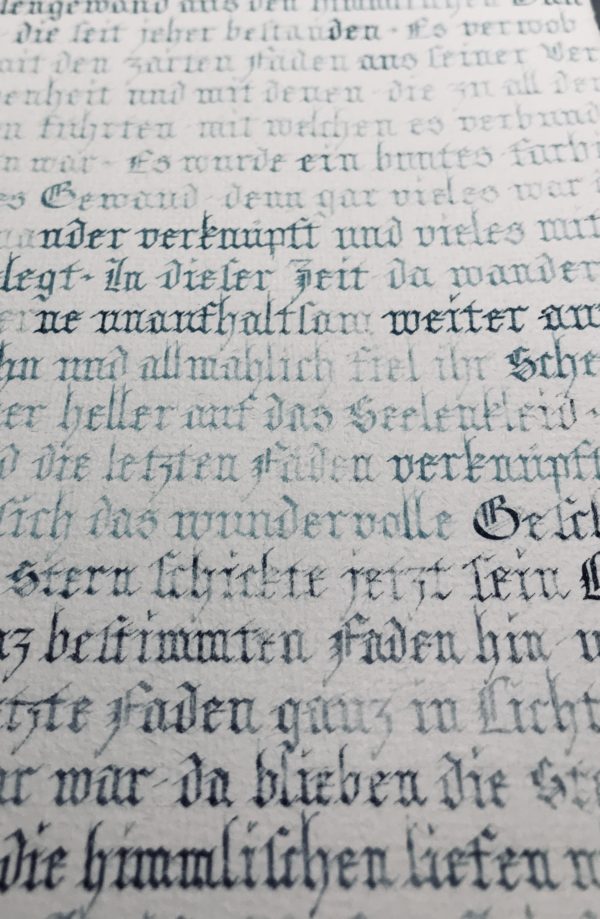 lengewand aus den himmlischen
die seit jeher bestanden - Es verwob
mit den zarten Faden aus seiner Ver
enheit und mit denen die zu all de
n fuhrten mit welchen es verbund
n war - Es wurde ein buntes farb
es Gewand denn gar vieles war
nander verknupft und vieles mit
legt - In dieser Zeit da wander
erne unaufhaltsam weiter au
hn und allmahlich fiel ihr Sche
er heller auf das Seelenkleid -
d die letzten Faden verknupft
sich das wundervolle Gesch
Stern schickte jetzt sein L
nz bestimmten Faden hin u
etzte Faden ganz in Licht
ar war da blieben die Ste
die himmlischen liefen